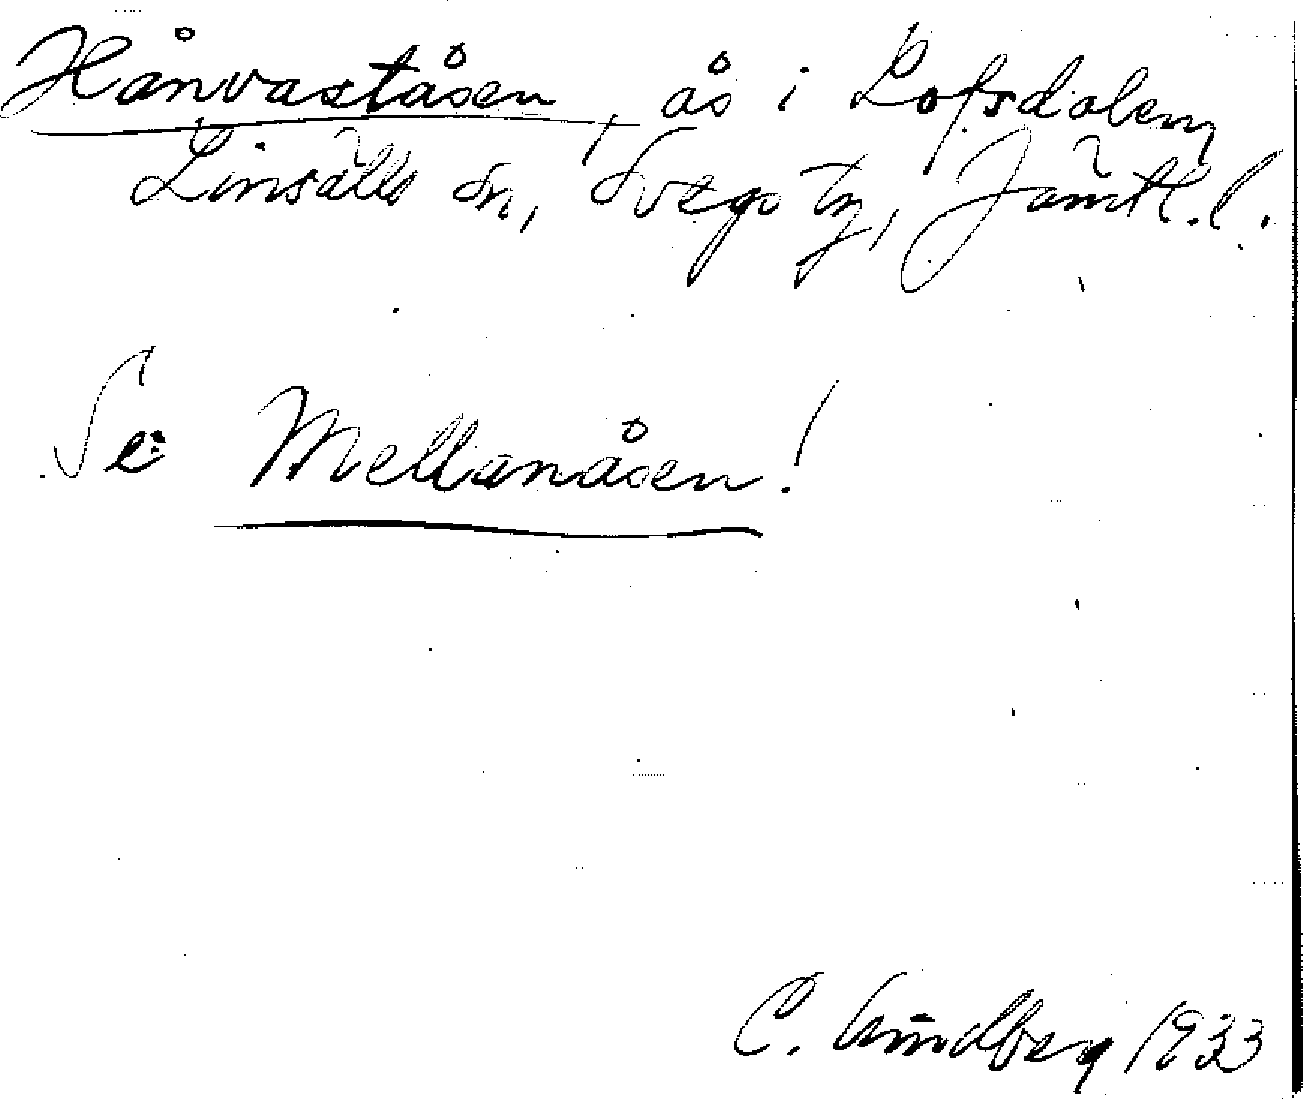 Hånvaståsen, ås i Lofsdalen,
Linsälls sn, Svegs tg, Jämtl. l.
Se Mellanåsen!
C. Lindberg 1933